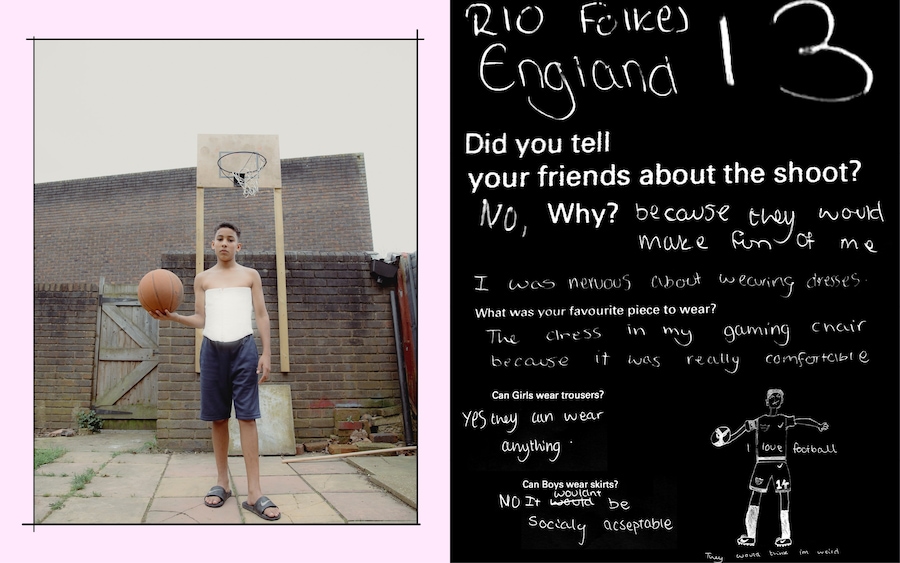 RIO FOlKes 13
England
Did you tell
your friends about the shoot?
NO, Why? because they would
make fun of me
I was nervous about wearing dresses.
What was your favourite piece to wear?
The dress in my gaming chair
because it was really comfortable
Can Girls wear trousers?
yes they can wear
anything.
Can Boys wear skirts?
wouldnt
NO It would be
Socialy acseptable
I love football
14
They would think im weird